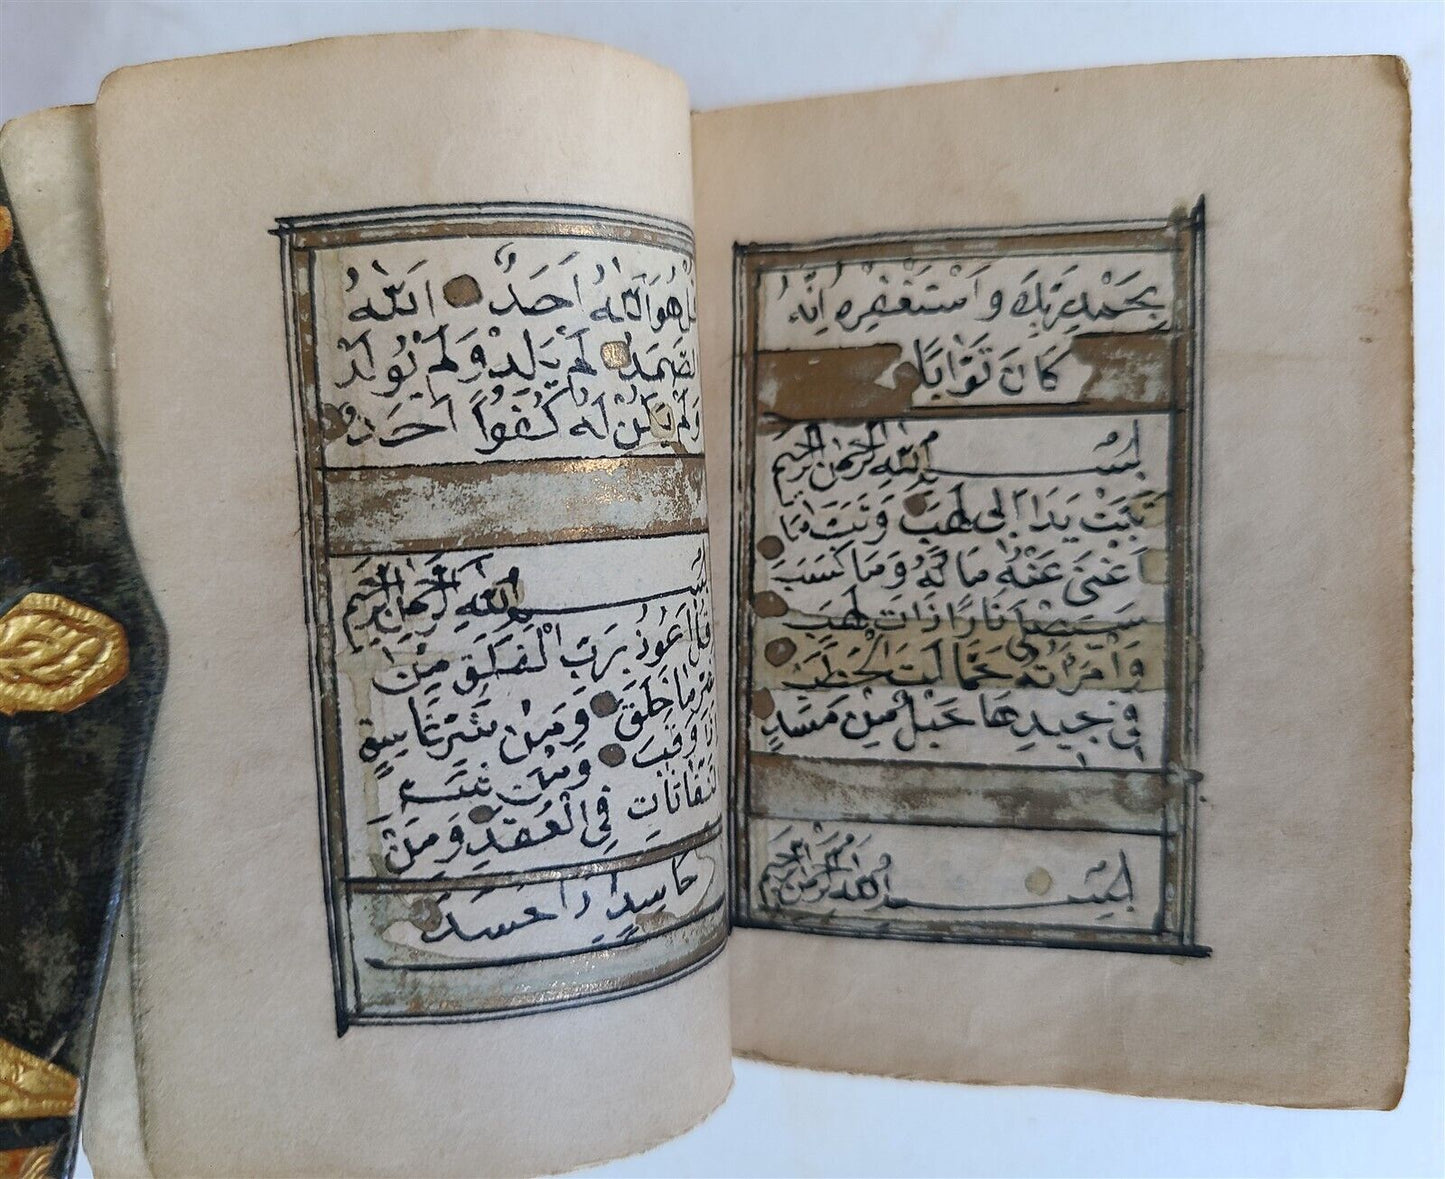 بِحَمْدِ رَبِّكَ وَاسْتَغْفِرْهُ اِنَّهُ
كَانَ تَوَّابًا
بِسْمِ اللهِ الرَّحْمٰنِ الرَّحِيمِ
تَبَّتْ يَدَا اَبِى لَهَبٍ وَتَبَّ مَا
اَغْنٰى عَنْهُ مَا لُهُ وَمَا كَسَبَ
سَيَصْلٰى نَارًا ذَاتَ لَهَبٍ
وَامْرَاَتُهُ حَمَّا لَتَ الْحَطَبِ
فِى جِيدِهَا حَبْلٌ مِنْ مَسَدٍ
بِسْمِ اللهِ الرَّحْمٰنِ الرَّحِيمِ
قُلْ هُوَ اللهُ اَحَدٌ اَللهُ
الصَّمَدُ لَمْ يَلِدْ وَلَمْ يُولَدْ
وَلَمْ يَكُنْ لَهُ كُفُوًا اَحَدٌ
بِسْمِ اللهِ الرَّحْمٰنِ الرَّحِيمِ
قُلْ اَعُوذُ بِرَبِّ الْفَلَقِ مِنْ
شَرِّ مَا خَلَقَ وَمِنْ شَرِّ غَاسِقٍ
اِذَا وَقَبَ وَمِنْ شَرِّ
النَّفَّاثَاتِ فِى الْعُقَدِ وَمِنْ
حَاسِدٍ اِذَا حَسَدَ